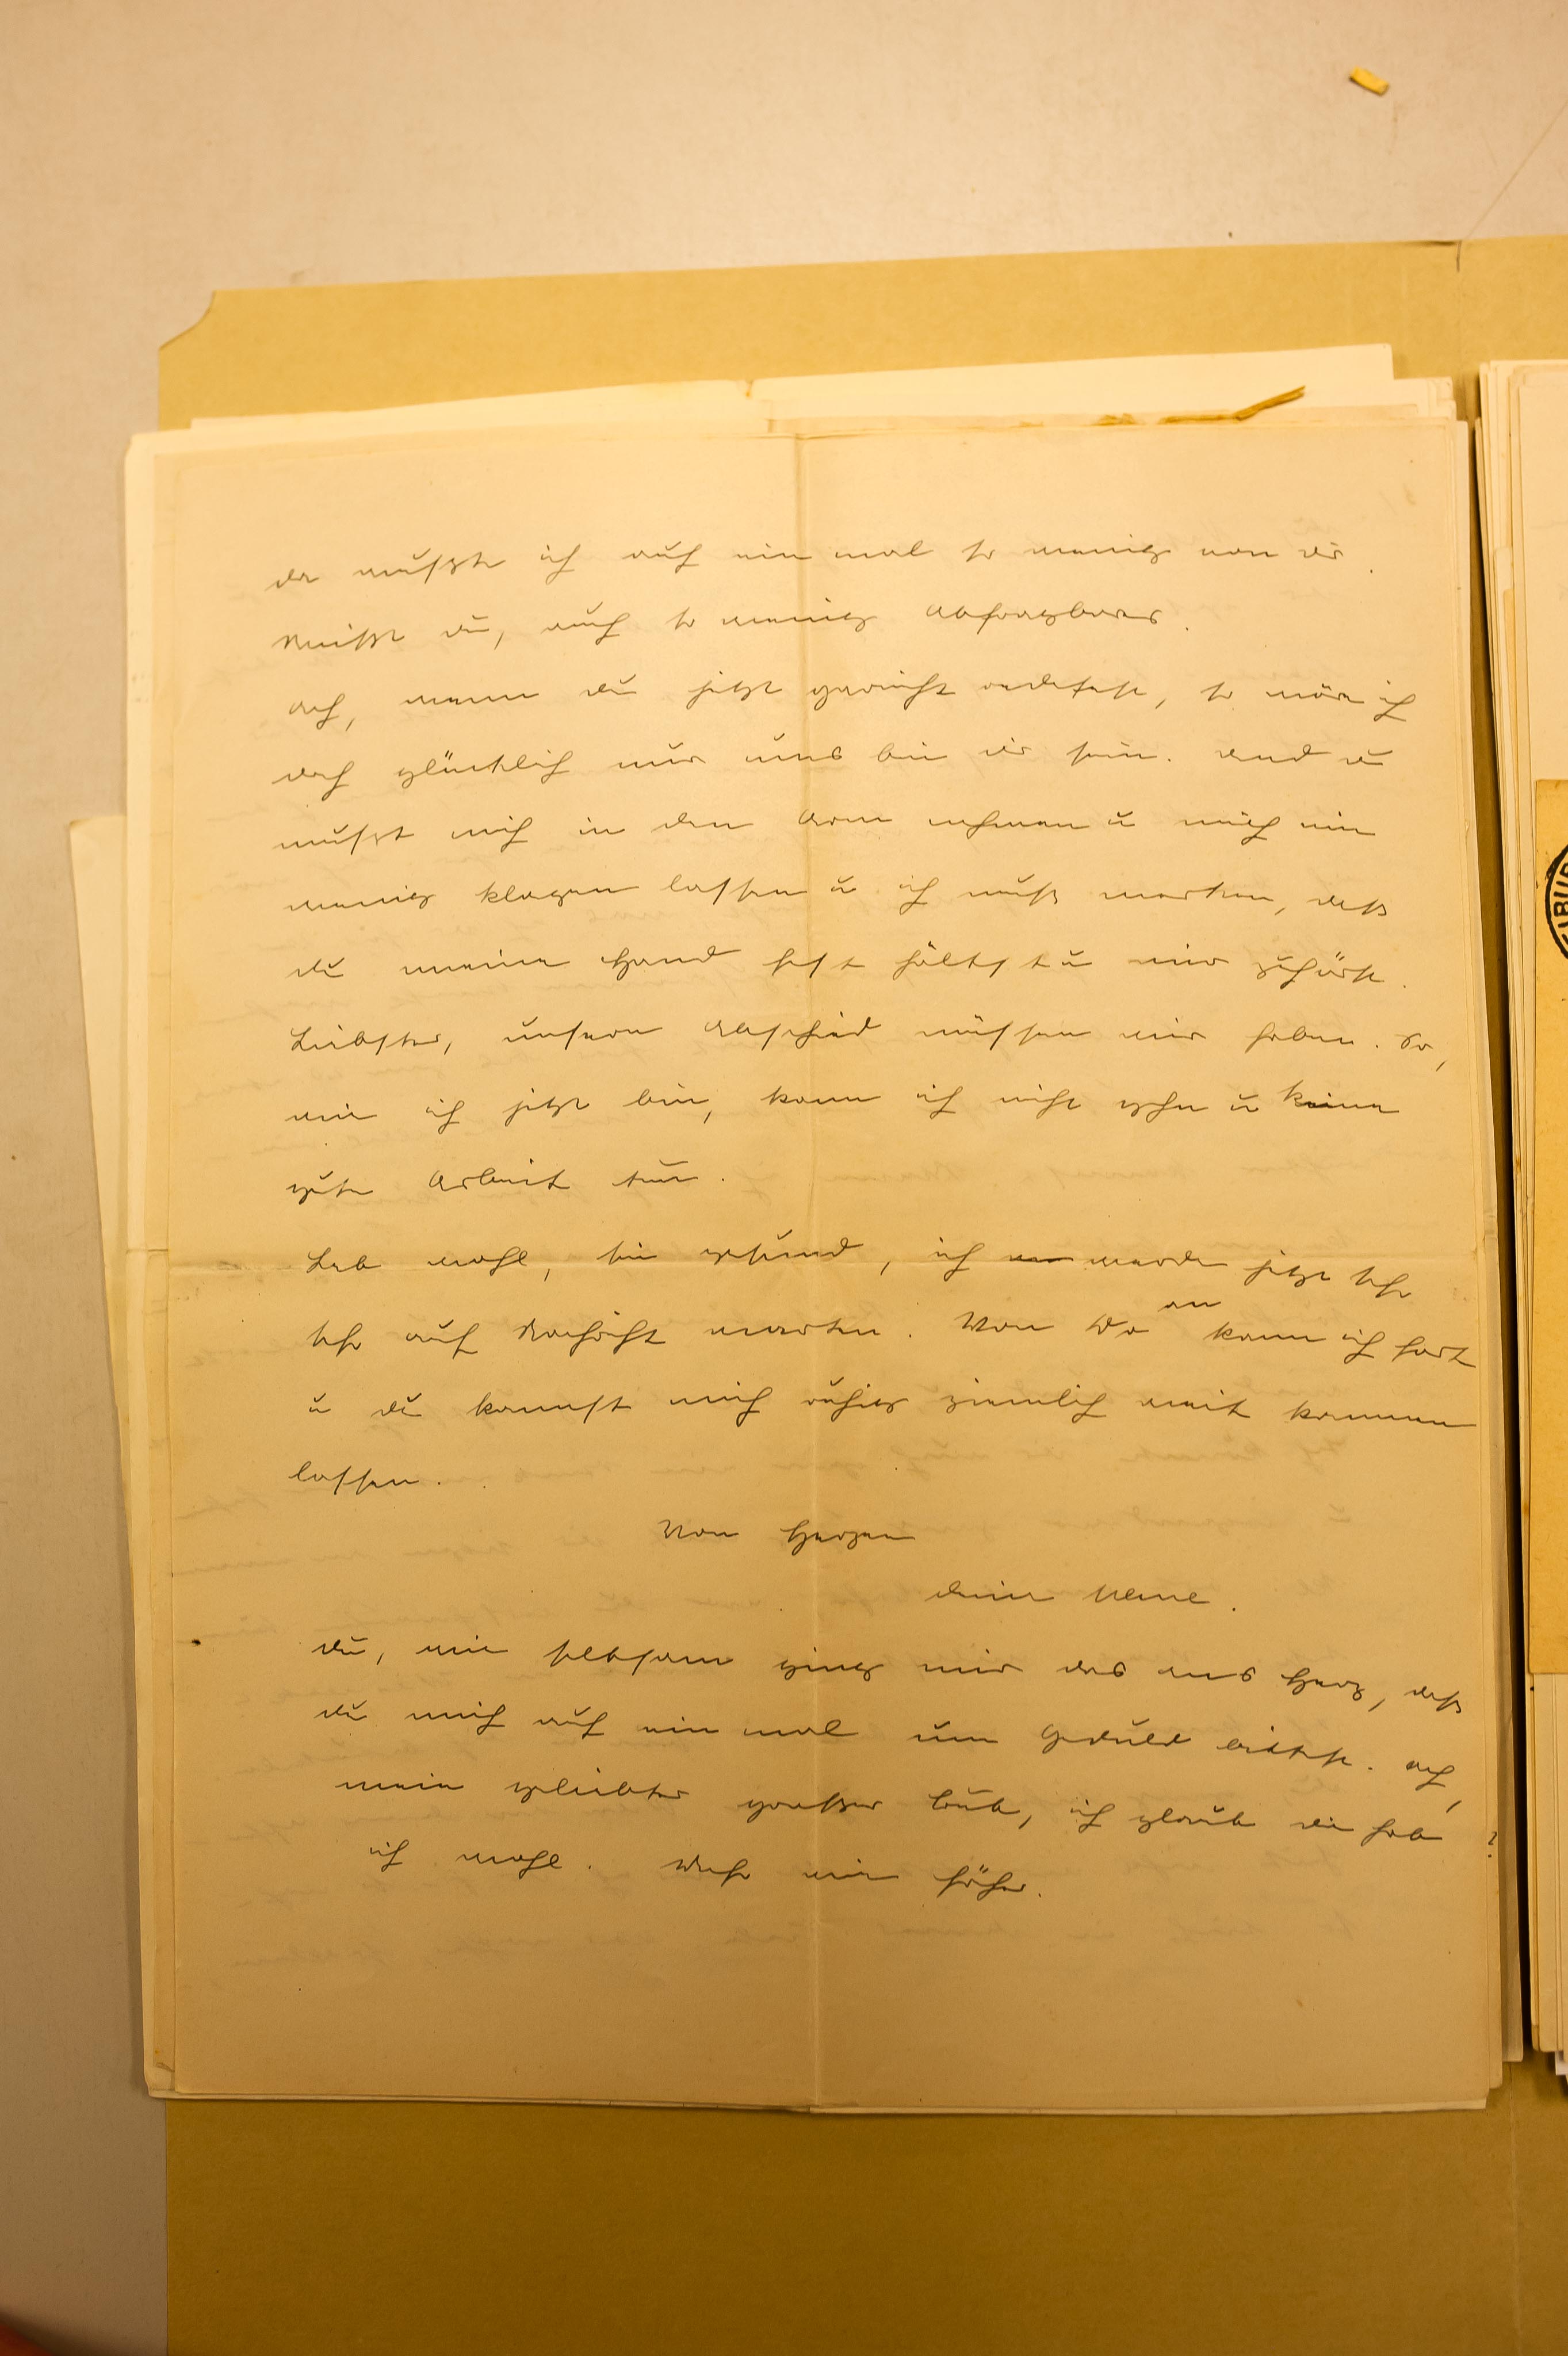 da wußte ich auf ein mal so wenig von dir.
Weißt du, auch so wenig Abfragbares.
Ach, wenn du jetzt garnicht redetest, so wäre ich
doch glücklich nur ums bei dir sein. Und du
mußt mich in den Arm nehmen u mich ein
wenig klagen lassen u ich muß merken, daß
du meine Hand fest hältst u mir zuhörst.
Liebster, unsern Abschied müssen wir haben. So,
wie ich jetzt bin, kann ich nicht gehn u keine
gute Arbeit tun.
Leb wohl, sei gesund, ich werde jetzt sehr
sehr auf Nachricht warten. Von Do an kann ich fort
u du kannst mich ruhig ziemlich weit kommen
lassen.
Von Herzen
deine
du, wie seltsam ging mir das ans Herz, daß
du mich auf ein mal um Geduld bittest. Ach,
mein geliebter großer Bub, ich glaub die hab
ich wohl. Mehr wie früher.
BUR